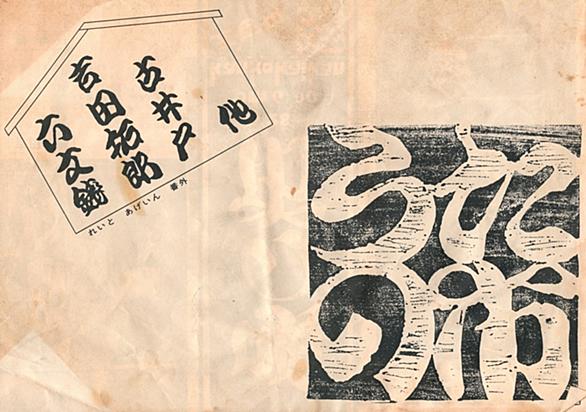 六文銭
吉田拓郎
古井戸
他
れいと あげいん 番外
うたの市